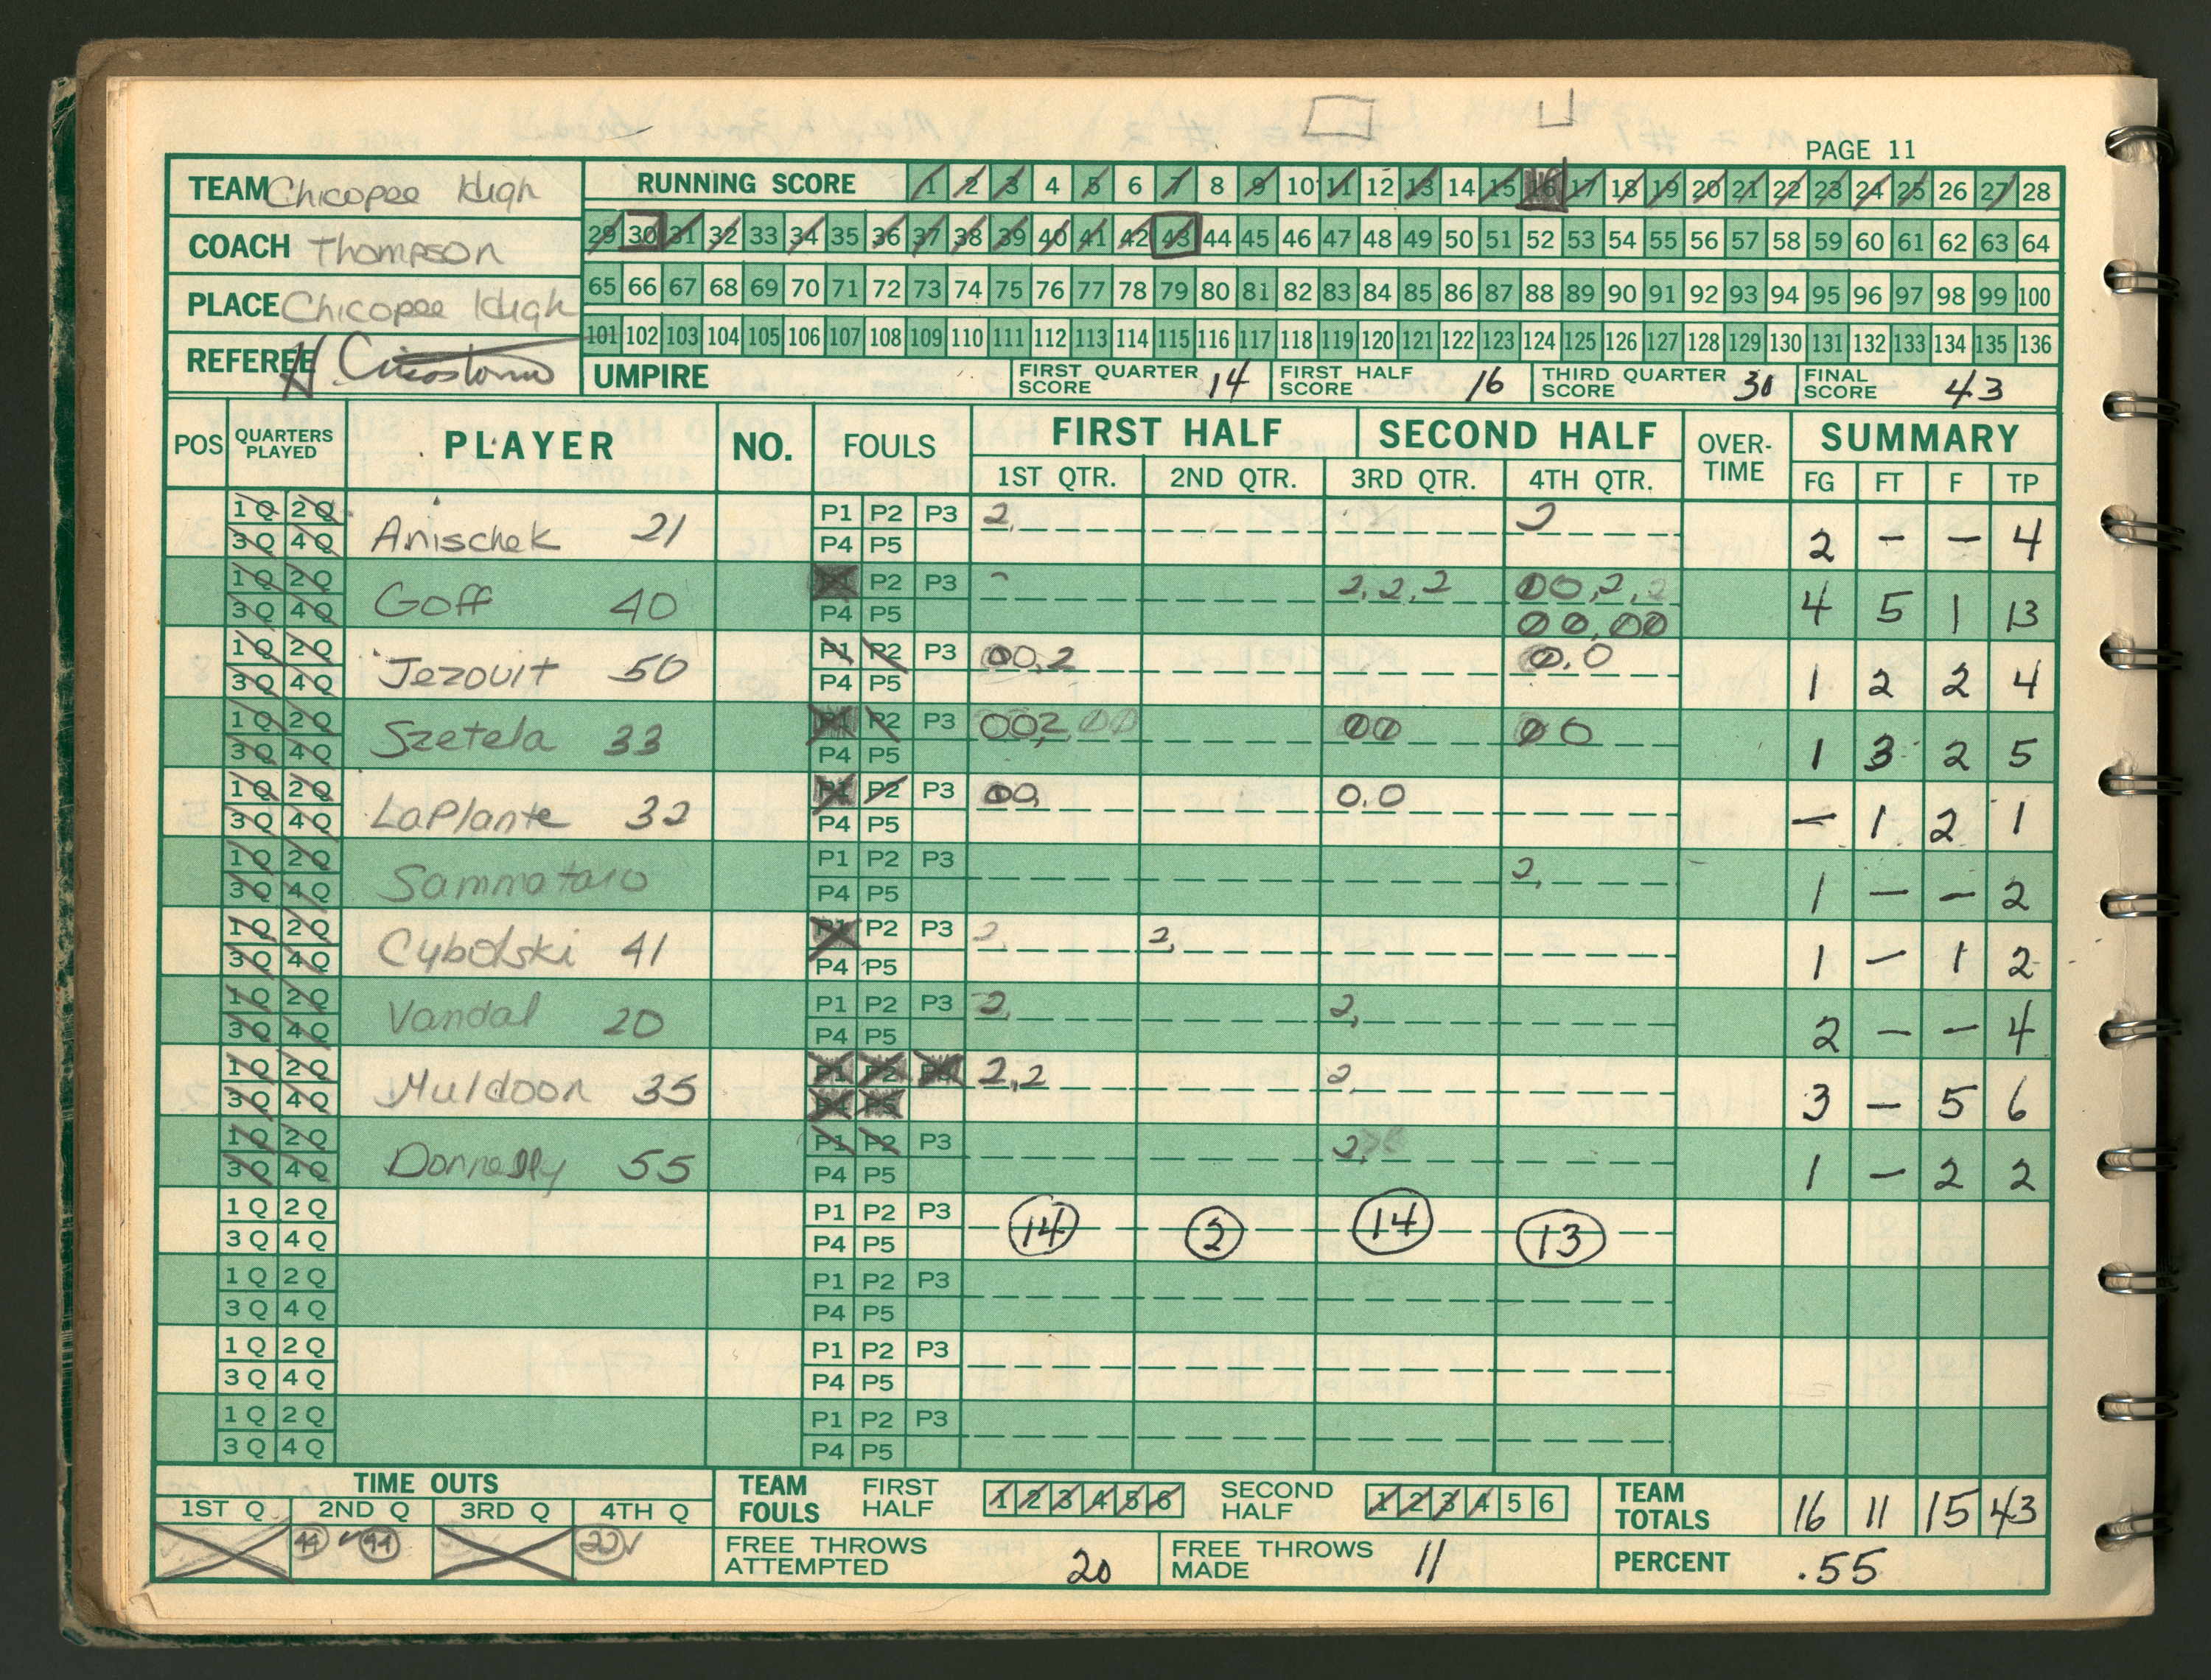 PAGE 11
TEAM Chicopee High
COACH Thompson
PLACE Chicopee High
REFEREE
RUNNING SCORE 1 2 3 4 5 6 7 8 9 10 11 12 13 14 15 16 17 18 19 20 21 22 23 24 25 26 27 28
29 30 31 32 33 34 35 36 37 38 39 40 41 42 43 44 45 46 47 48 49 50 51 52 53 54 55 56 57 58 59 60 61 62 63 64
65 66 67 68 69 70 71 72 73 74 75 76 77 78 79 80 81 82 83 84 85 86 87 88 89 90 91 92 93 94 95 96 97 98 99 100
101 102 103 104 105 106 107 108 109 110 111 112 113 114 115 116 117 118 119 120 121 122 123 124 125 126 127 128 129 130 131 132 133 134 135 136
UMPIRE FIRST QUARTER SCORE 14 FIRST HALF SCORE 16 THIRD QUARTER SCORE 30 FINAL SCORE 43
POS QUARTERS PLAYED PLAYER NO. FOULS FIRST HALF SECOND HALF OVER-TIME SUMMARY
1ST QTR. 2ND QTR. 3RD QTR. 4TH QTR. FG FT F TP
1Q 2Q P1 P2 P3 2, 2
3Q 4Q Anischek 21 P4 P5 2 – – 4
1Q 2Q P1 P2 P3 2,2,2 00,2,2
3Q 4Q Goff 40 P4 P5 00,00 4 5 1 13
1Q 2Q P1 P2 P3 00,2 0,0
3Q 4Q Jezouit 50 P4 P5 1 2 2 4
1Q 2Q P1 P2 P3 002,00 00 00
3Q 4Q Szetela 33 P4 P5 1 3 2 5
1Q 2Q P1 P2 P3 00, 0,0
3Q 4Q LaPlante 32 P4 P5 – 1 2 1
1Q 2Q P1 P2 P3 2,
3Q 4Q Sammataro P4 P5 1 – – 2
1Q 2Q P1 P2 P3 2, 2,
3Q 4Q Cybolski 41 P4 P5 1 – 1 2
1Q 2Q P1 P2 P3 2, 2,
3Q 4Q Vandal 20 P4 P5 2 – – 4
1Q 2Q P1 P2 P3 2,2 2,
3Q 4Q Muldoon 35 P4 P5 3 – 5 6
1Q 2Q P1 P2 P3 2,
3Q 4Q Donnelly 55 P4 P5 1 – 2 2
1Q 2Q P1 P2 P3 14 2 14 13
3Q 4Q P4 P5
1Q 2Q P1 P2 P3
3Q 4Q P4 P5
1Q 2Q P1 P2 P3
3Q 4Q P4 P5
1Q 2Q P1 P2 P3
3Q 4Q P4 P5
TIME OUTS
1ST Q 2ND Q 3RD Q 4TH Q
44 44 22
TEAM FOULS FIRST HALF 1 2 3 4 5 6 SECOND HALF 1 2 3 4 5 6
FREE THROWS ATTEMPTED 20 FREE THROWS MADE 11
TEAM TOTALS 16 11 15 43
PERCENT .55